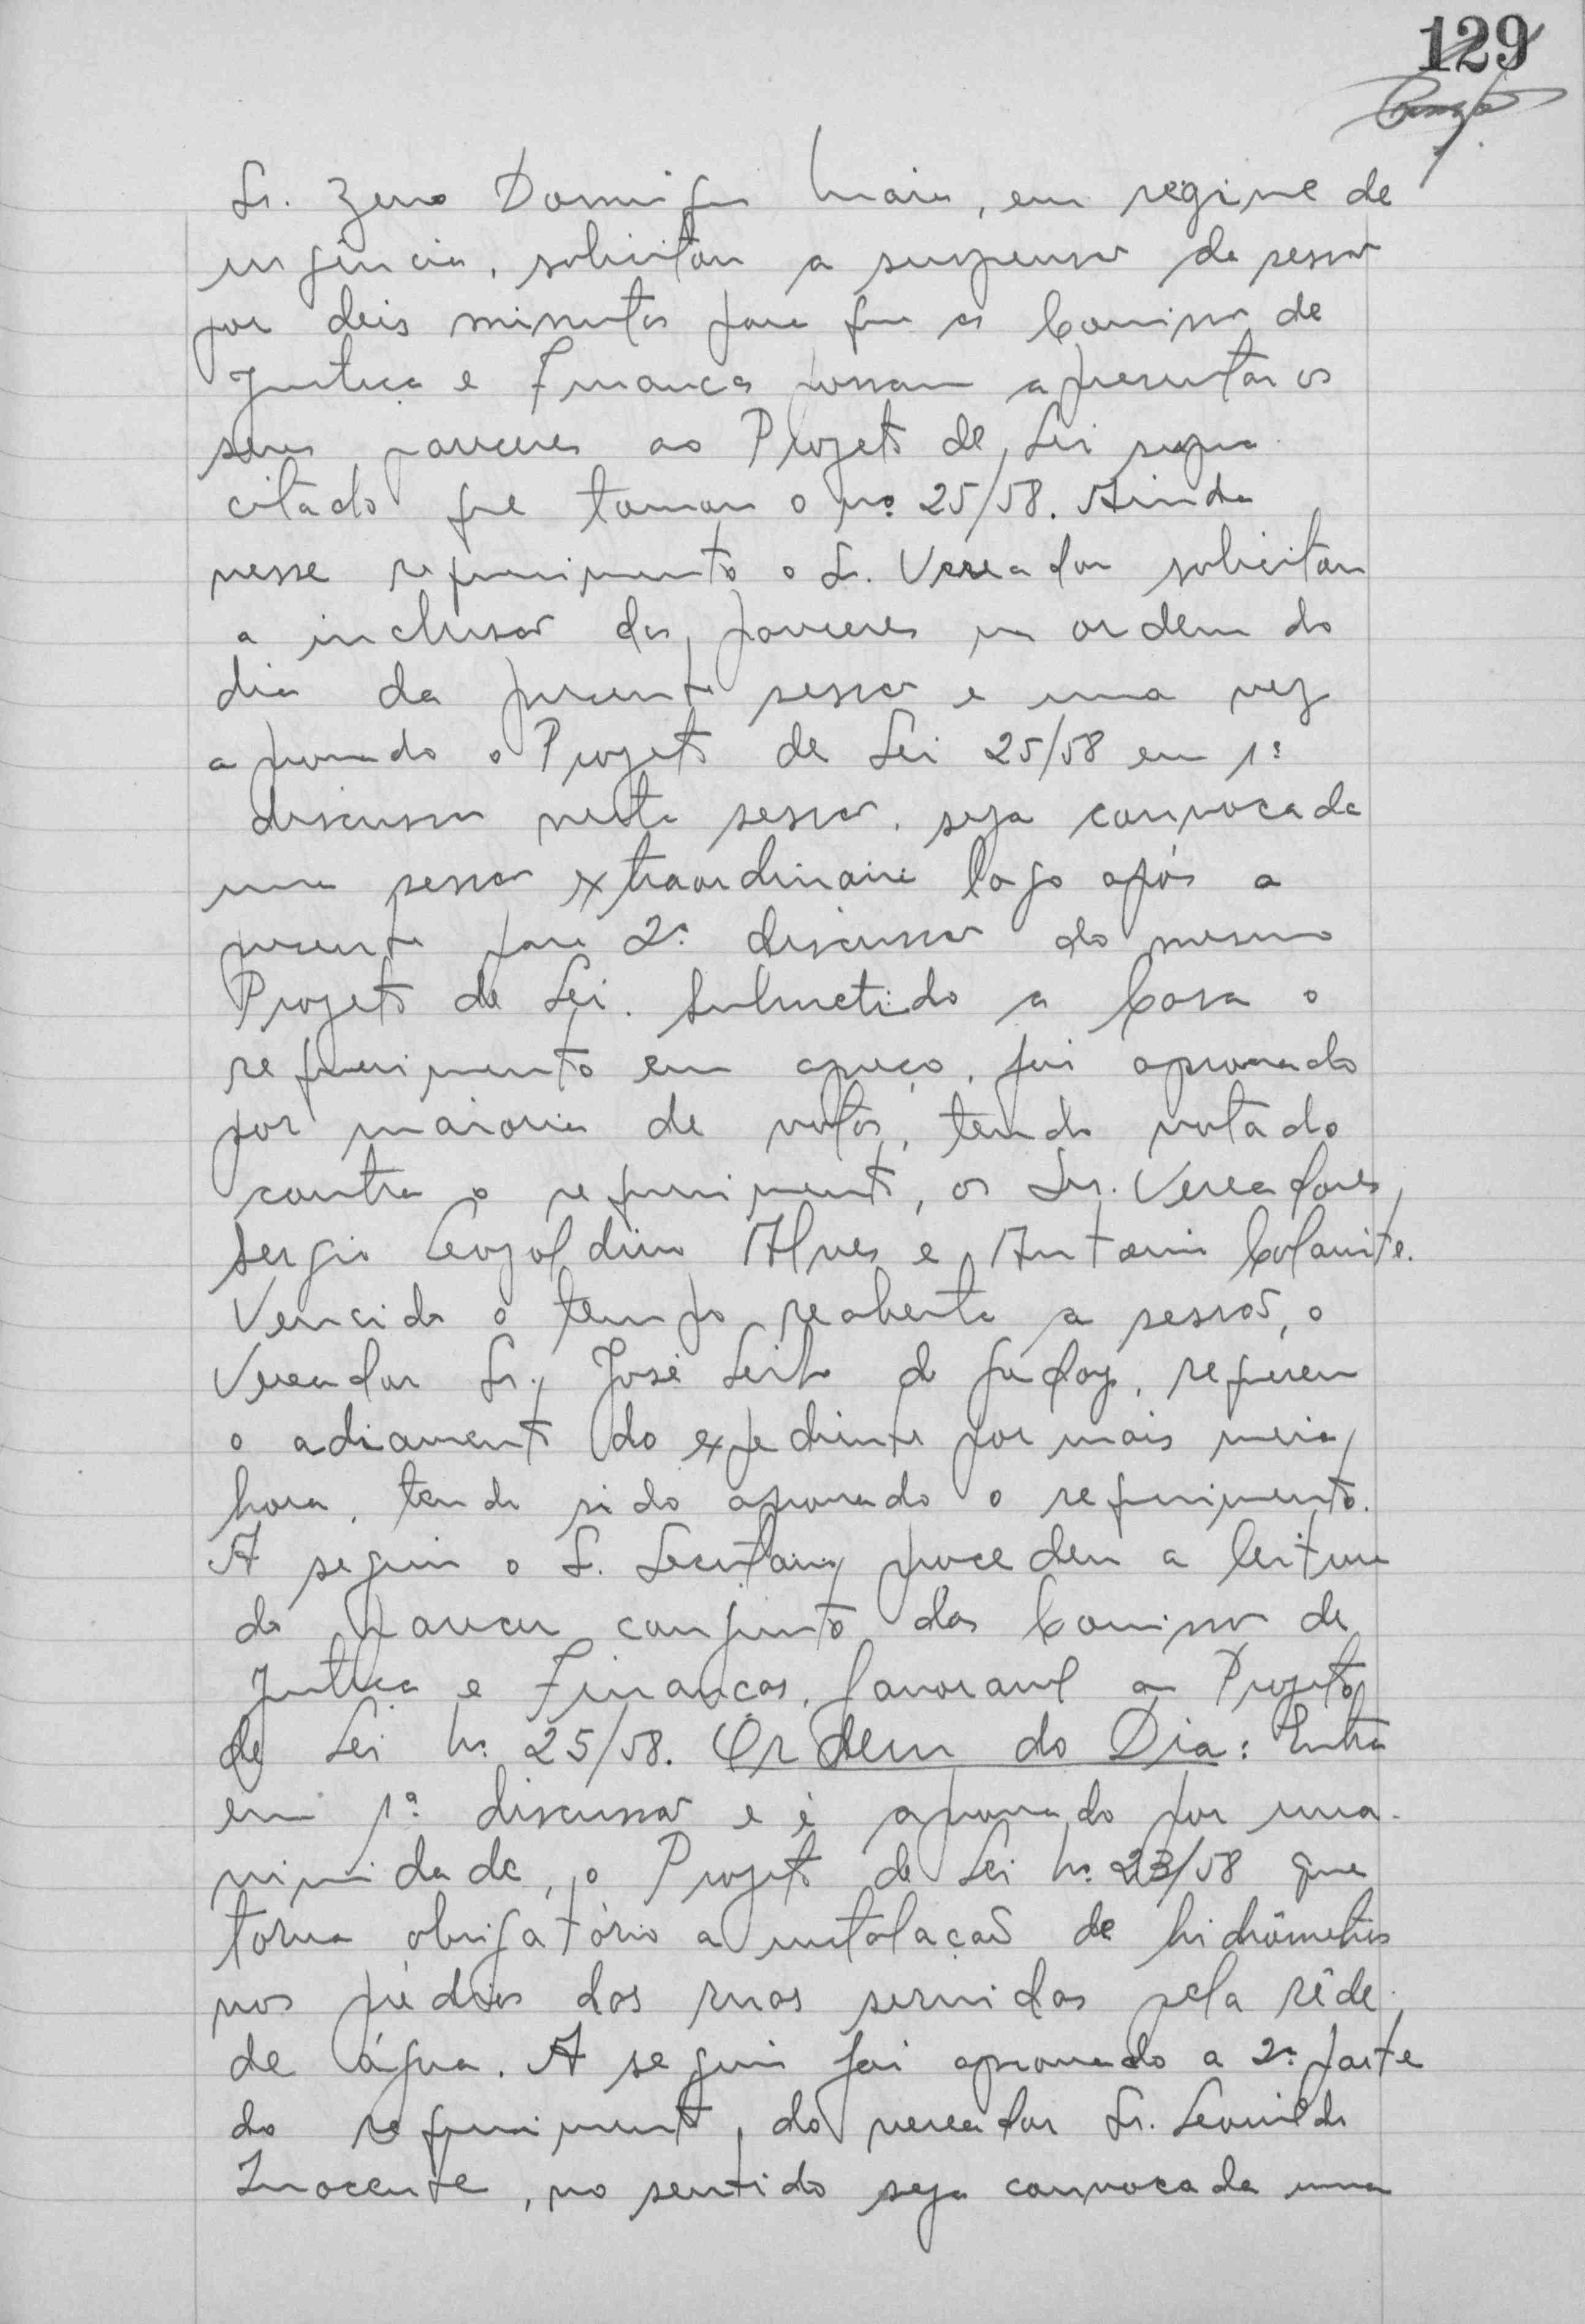 129
Sr. Zeno Domingos Maia, em regime de
urgência, solicitou a suspensão da sessão
por dois minutos para que as Comissões de
Justiça e Finanças possam apresentar os
seus pareceres ao Projeto de Lei supra
citado que tomou o nº 25/58. Ainda
nesse requerimento o Sr. Vereador solicitou
a inclusão dos pareceres na ordem do
dia da presente sessão e uma vez
aprovado o Projeto de Lei 25/58 em 1ª
discussão nesta sessão, seja convocada
uma sessão extraordinária logo após a
presente para 2ª discussão do mesmo
Projeto de Lei. Submetido a Casa o
requerimento em apreço, foi aprovado
por maioria de votos, tendo votado
contra o requerimento, os Srs. Vereadores,
Sergio Leopoldino Alves e Antonio Colavite.
Vencido o tempo reaberta a sessão, o
Vereador Sr. José Leite de Godoy, requereu
o adiamento do expediente por mais meia
hora, tendo sido aprovado o requerimento.
A seguir o Sr. Secretario procedeu a leitura
do parecer conjunto das Comissões de
Justiça e Finanças, favoravel ao Projeto
de Lei nº 25/58. Ordem do Dia: Entra
em 1ª discussão e é aprovado por una-
nimidade, o Projeto de Lei nº 23/58 que
torna obrigatório a instalação de hidrômetros
nos prédios das ruas servidas pela rêde
de água. A seguir foi aprovado a 2ª parte
do requerimento, do vereador Sr. Leonildo
Inocente, no sentido seja convocada uma